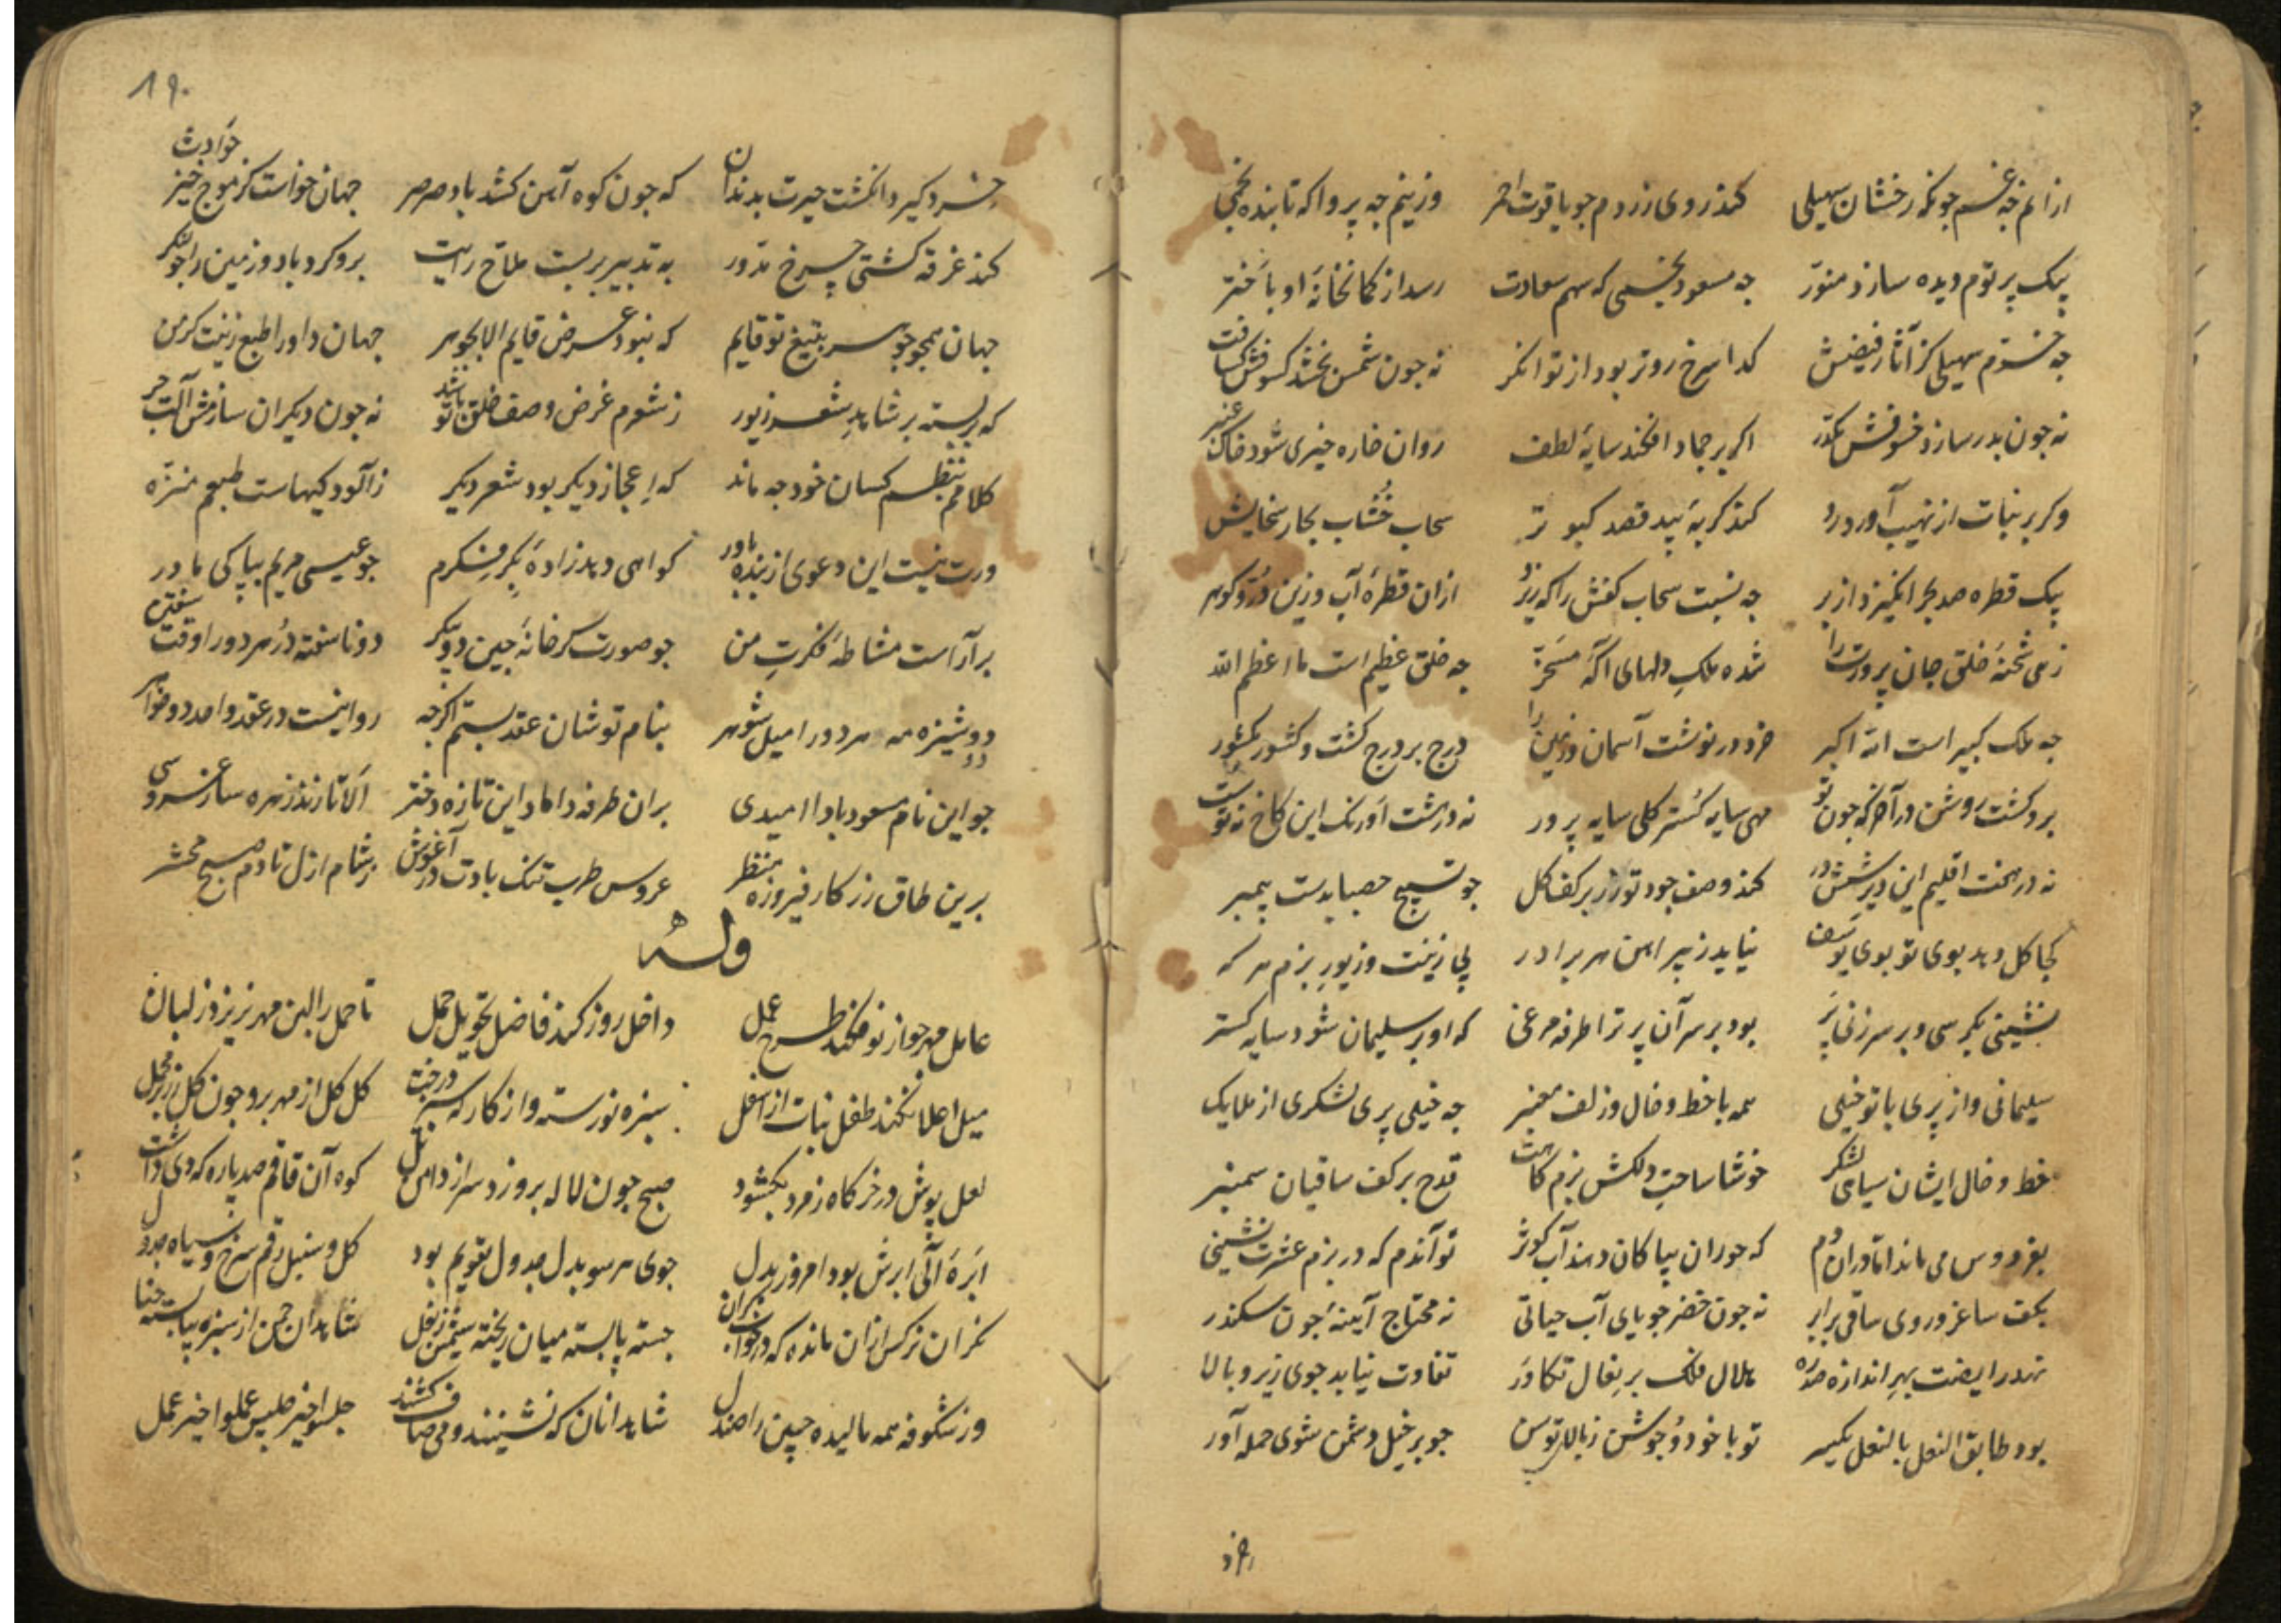 ازانم چه غم چونکه رخشان سهیلی کند روی زردم چو یاقوت احمر وزینم چه پروا که تابنده نجمی
بیک پرتوم دیده سازد منور چه مسعود نجمی که سهم سعادت رسد از کمانخانهٔ او باختر
چه خرم سهیلی کز آثار فیضش کدا سرخ روتر بود از توانکر نه چون شمس بخشد کسوفش کثافت
نه چون بدر سازد خسوفش مکدر اکر بر جماد افکند سایهٔ لطف روان خاره خیری شود خاک عنبر
وکر بر نبات از نهیب آورد رو کند کربهٔ بید قصد کبوتر سحاب خُشاب بحار سخایش
بیک قطره صد بحر انکیزد از بر چه نسبت سحاب کفش را که ریزد ازان قطرهٔ آب وزین دُر و کوهر
زهی شحنهٔ خلق جان پرورت را شده ملکِ دلهای آکه مسخر چه خلق عظیم است ما اعظم الله
چه ملک کبیر است الله اکبر خرد در نوشت آسمان و زمین را درج بر درج کشت و کشور بکشور
برو کشت روشن در آخر که چون تو مهی سایه کستر کلی سایه پرور نه در هشت اورنک این کاخ نه تو ست
نه در هفت اقلیم این دیر شش در کند وصف جود تو زر بر کف کل چو تسبیح حصبا بدست پیمبر
کجا کل دهد بوی تو بوی یوسف نیاید ز پیراهن هر برادر پی زینت و زیورِ بزم هر که
نشینی بکرسی و بر سر زنی پَر بود بر سر آن پر ترا طرفه مرغی که او بر سلیمان شود سایه کستر
سلیمانی و از پری با تو خیلی همه با خط و خال و زلف معنبر چه خیلی پری لشکری از ملایک
خط و خال ایشان سیاهی لشکر خوشا ساحتِ دلکش بزم کاهت قدح بر کف ساقیان سمنبر
بفردوس می ماند اما دران دم که حوران بپاکان دهند آب کوثر تو آندم که در بزم عشرت نشینی
بکف ساغر و روی ساقی برابر نه چون خضر جویای آب حیاتی نه محتاج آیینهٔ چون سکندر
هلال فلک بر نعال تکاور تفاوت نیابد جوی زیر و بالا
بود طابق النعل بالنعل یکسر تو با خود و جوشن ز بالای توسن چو بر خیل دشمن شوی حمله آور
۱۹۰
خرد کیرد انکشت حیرت بدندان که چون کوه آهن کشد باد صرصر جهان خواست کز موج خیز حوادث
کند غرقه کشتی چرخ مدور به تدبیر بربست ملاح رایت برو کرد باد و زمین را چو لنکر
جهان همچو جوهر بتیغ تو قایم که نبود عرض قایم الا بجوهر جهان داورا طبع زینت کر من
که بربسته بر شاهدِ شعر زیور ز شعرم غرض وصف خلق تو باشد نه چون دیکران سازمش آلت جر
کلامم بنظم کسان خود چه ماند که اِعجاز دیکر بود شعر دیکر ز آلودکیهاست طبعم منزه
ورت نیست این دعوی از بنده باور کواهی دهد زادهٔ بِکرِ فکرم چو عیسی مریم بپاکی مادر
برآراست مشاطهٔ فکرتِ من چو صورت کر خانهٔ چین دو پیکر دو ناسفته دُر هر دو را وقت سفتن
دو دوشیزه مه هر دو را میل شوهر بنام تو شان عقد بستم اکرچه روا نیست در عقد واحد دو خواهر
چو این نام مسعود بادا امیدی بران طرفه داماد این تازه دختر اَلا تا زند زهره ساز عروسی
برین طاق زرکار فیروزه منظر عروس طرب تنک بادت در آغوش ز شام ازل تا دم صبح محشر
وله
عامل مهر چو از نو فکند طرح عمل داخل روز کند فاضل تحویل حمل تا حمل را لبن مهر نریزد ز لبان
میل اعلا نکند طفل نبات از اسفل سبزه نورسته و از کار که سبز درخت کل کل از مهر برو چون کل زر بر مخمل
لعل پوش در خرکاه زمرد بکشود صبح چون لاله برو زد سر از دامن تل کوه آن قاقم صد پاره که دی داشت
ابرهٔ آلی ابرش بود امروز بدل جوی هر سو بدل جدول تقویم بود کل و سنبل رقم سرخ و سیاه جدول
نکران نرکس ازان مانده که در خواب جسته پا بسته میان ریخته سیمش ز بغل شاهدان چمن از سبزه بپا بسته حنا
وز شکوفه همه مالیده جبین را صندل شاهد انان که نشینند و می صاف کشند جلسوا خیر جلیس عملوا خیر عمل